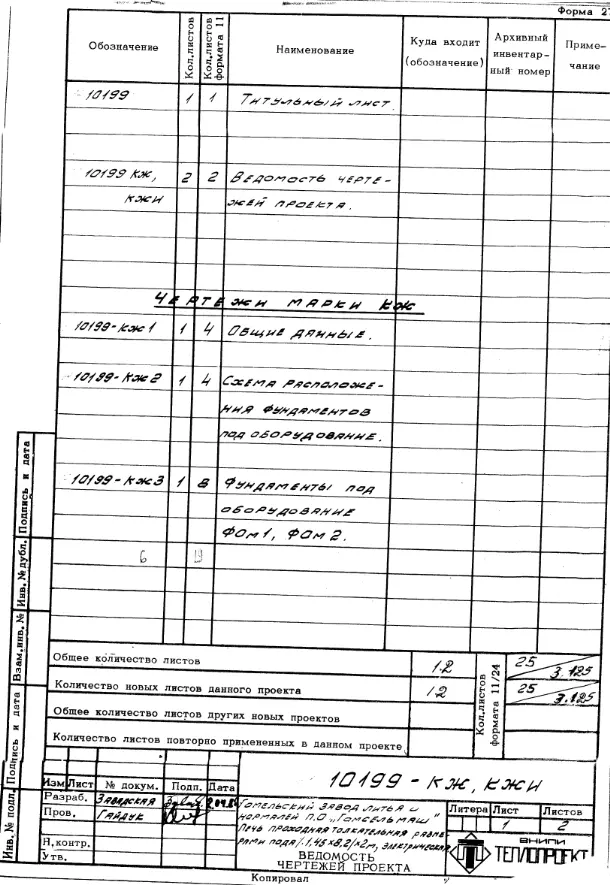 Форма 2
Обозначение
Кол.листов
Кол.листов формата 11
Наименование
Куда входит (обозначение)
Архивный инвентар-ный номер
Приме-чание
10199 1 1 Титульный лист.
10199 КЖ, 2 2 Ведомость черте-
КЖИ жей проекта.
Чертежи марки КЖ
10199-КЖ1 1 4 Общие данные.
10199-КЖ2 1 4 Схема располоɪже-
ния фундаментов
под оборудование.
10199-КЖ3 1 8 Фундаменты под
оборудование
ФОм1, ФОм2.
6 19
Общее количество листов 12
Количество новых листов данного проекта 12
Общее количество листов других новых проектов
Количество листов повторно примененных в данном проекте
Кол.листов формата 11/24
25 / 3.125
25 / 3.125
Подпись и дата
Инв. № дубл.
Взам.инв. №
Подпись и дата
Инв. № подл.
10199 - КЖ, КЖИ
Изм Лист № докум. Подп. Дата
Разраб. Заводская
Пров. Гайдук
Н.контр.
Утв.
Гомельский завод литья и
нормалей П.О „Гомсельмаш"
Печь проходная толкательная
пода электрическая
ВЕДОМОСТЬ
ЧЕРТЕЖЕЙ ПРОЕКТА
Литера Лист Листов
1 2
ВНИПИ
ТЕПЛОПРОЕКТ
Копировал